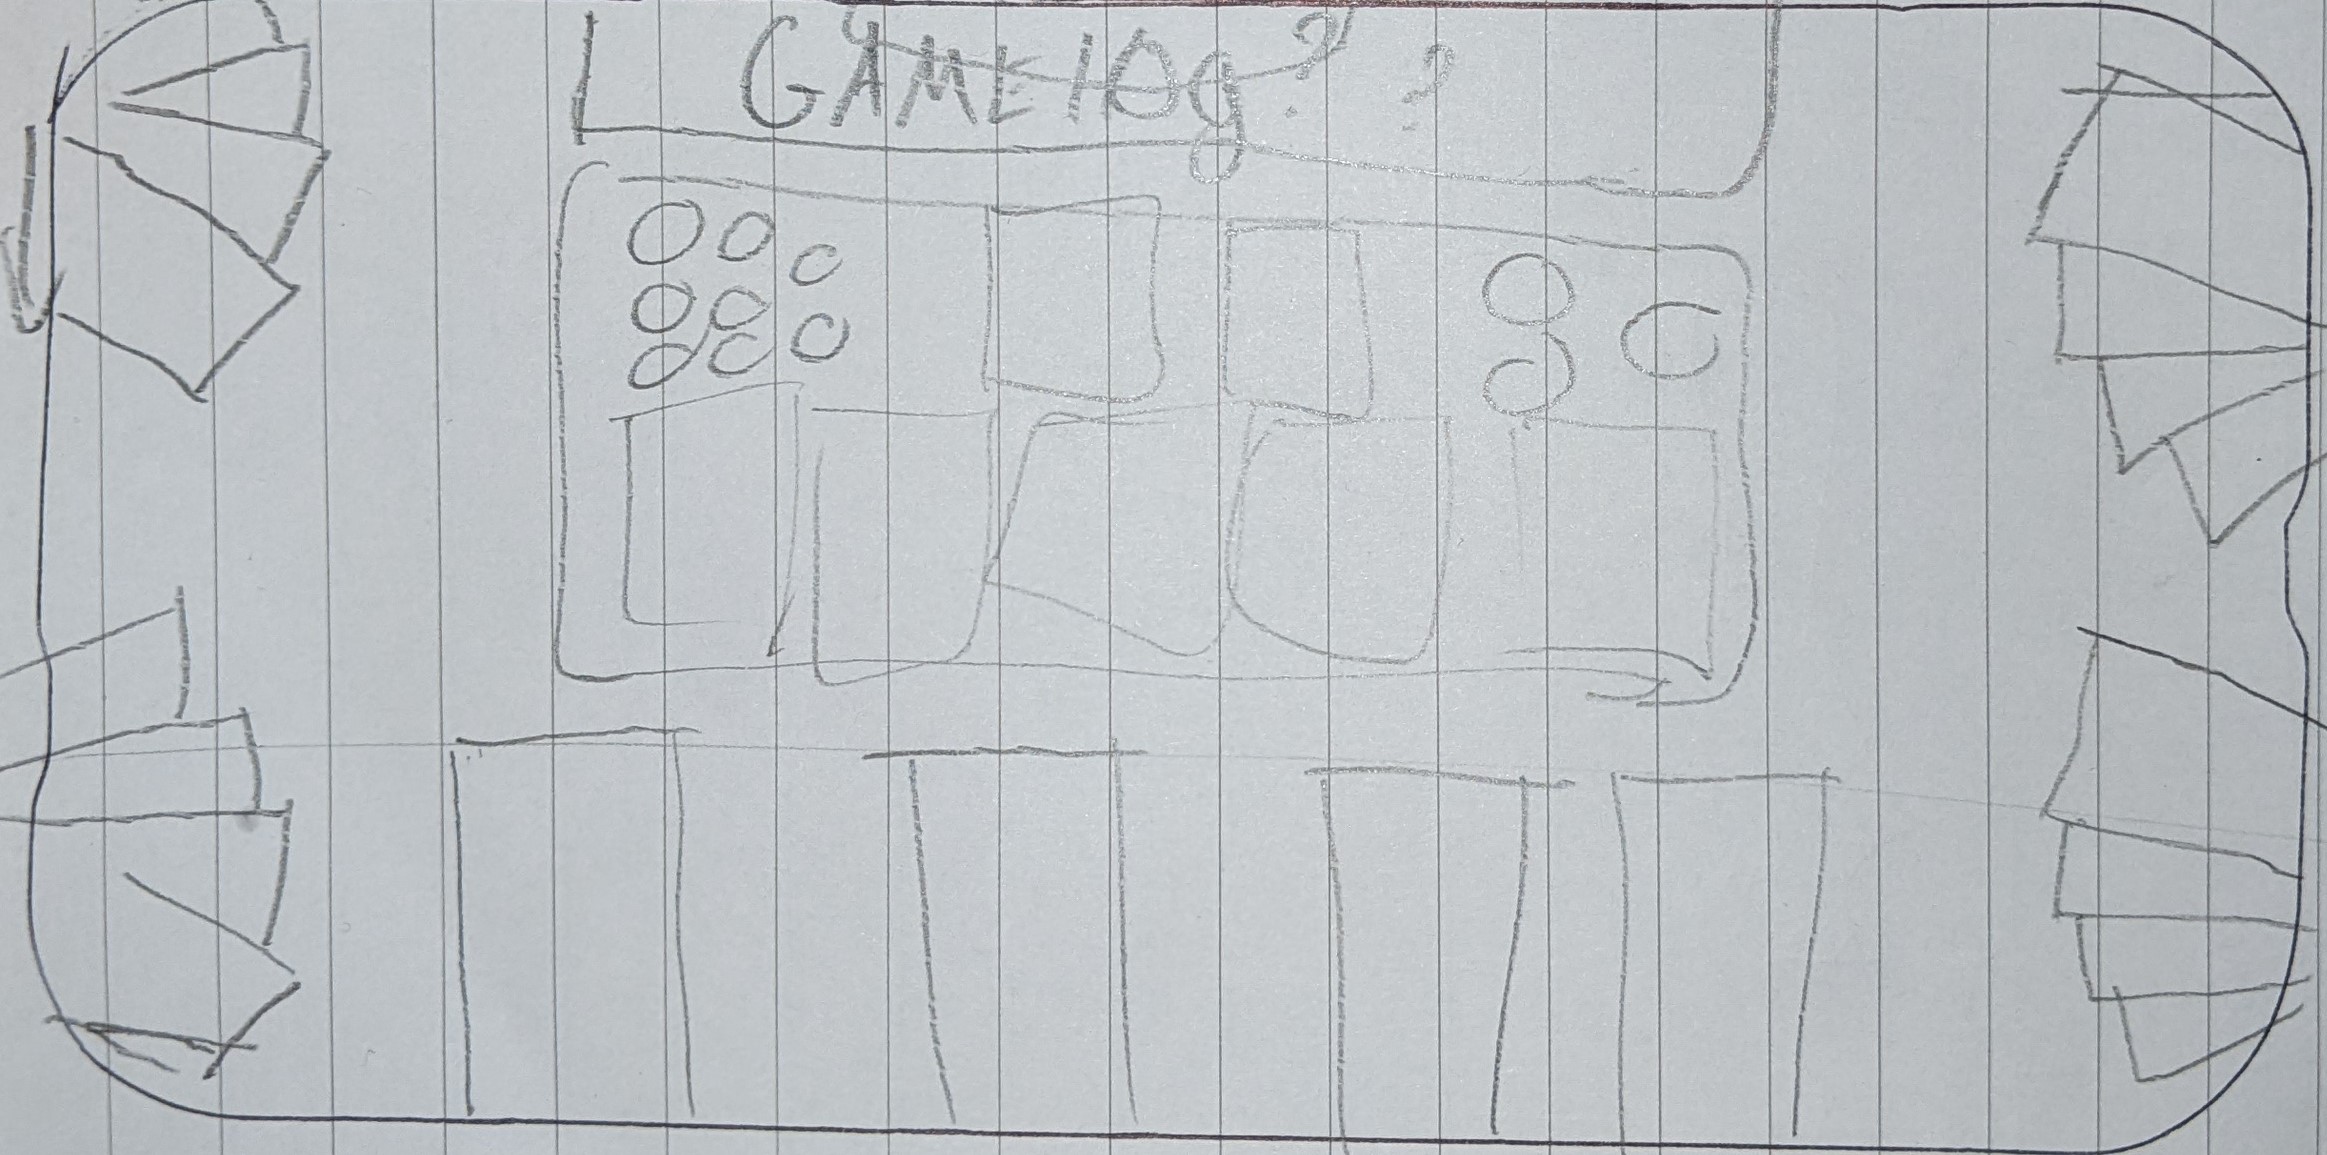 GAMElOg? ?